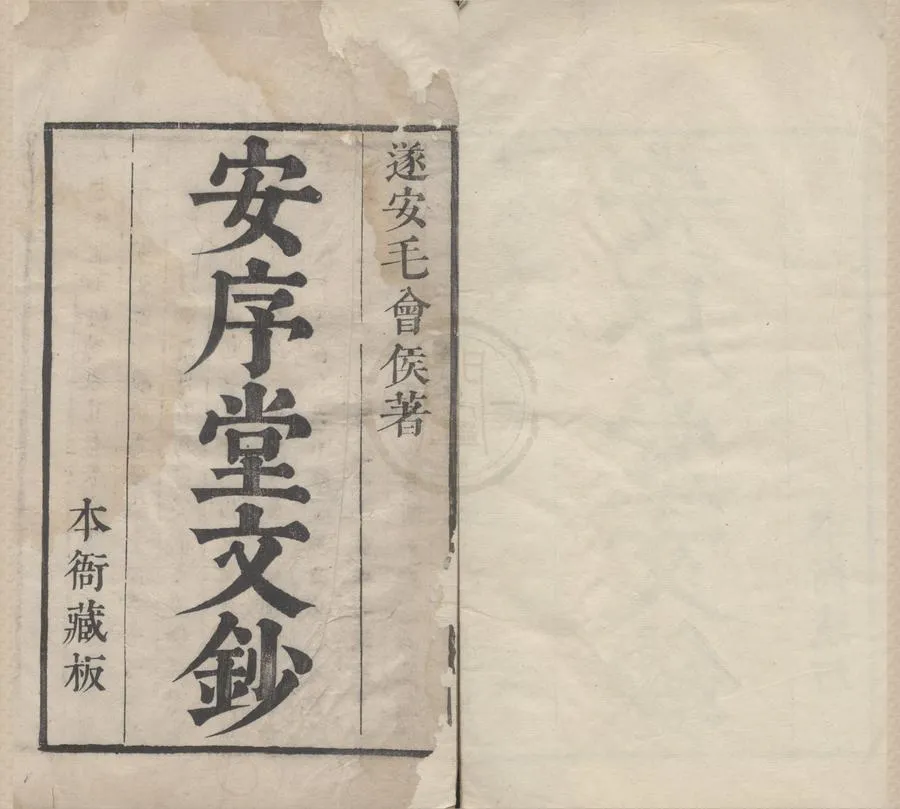 遂安毛會侯著
安序堂文鈔
本衙藏板